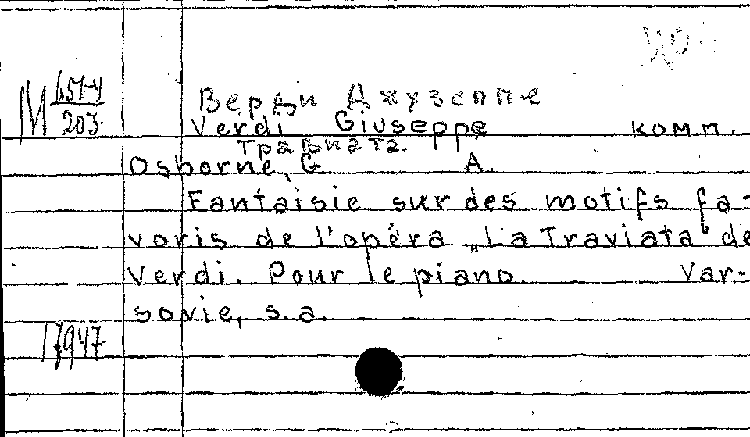 М 451-4
203
Верди Джузеппе
Verdi Giuseppe комп.
Травиата.
Osborne, G A.
Fantaisie sur des motifs fa-
voris de l'opéra „La Traviata" de
Verdi. Pour le piano. Var-
sovie, s.a.
17947